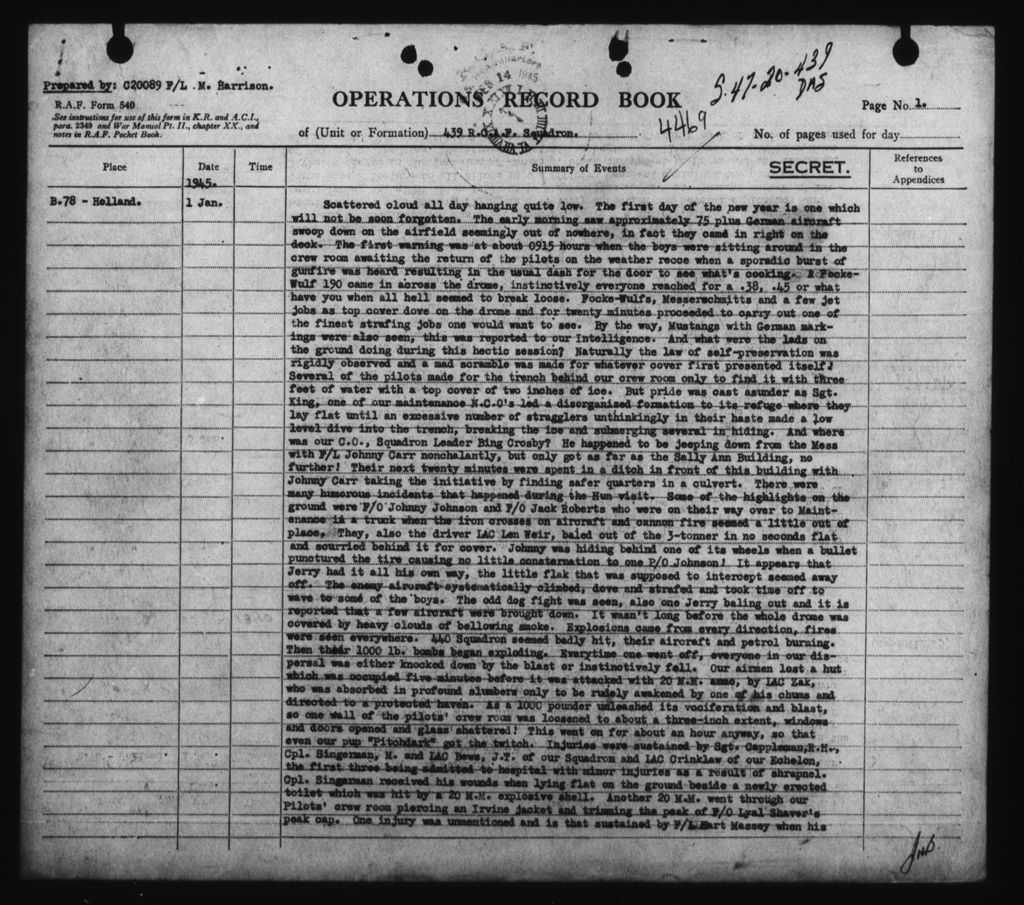 S.47-20-439
DMS
Prepared by: C20089 F/L .M. Harrison.
14 1945
R.A.F. Form 540
See instructions for use of this form in K.R. and A.C.I.,
para. 2349 and War Manual Pt. II., chapter XX., and
notes in R.A.F. Pocket Book.
OPERATIONS RECORD BOOK
Page No. 1.
of (Unit or Formation) 439 R.C.A.F. Squadron.
4469
No. of pages used for day
Place Date Time Summary of Events SECRET. References to Appendices
1945.
B.78 - Holland. 1 Jan. Scattered cloud all day hanging quite low. The first day of the new year is one which
will not be soon forgotten. The early morning saw approximately 75 plus German aircraft
swoop down on the airfield seemingly out of nowhere, in fact they came in right on the
deck. The first warning was at about 0915 hours when the boys were sitting around in the
crew room awaiting the return of the pilots on the weather recce when a sporadic burst of
gunfire was heard resulting in the usual dash for the door to see what's cooking. A Focke-
Wulf 190 came in across the drome, instinctively everyone reached for a .38, .45 or what
have you when all hell seemed to break loose. Focke-Wulfs, Messerschmitts and a few jet
jobs as top cover dove on the drome and for twenty minutes proceeded to carry out one of
the finest strafing jobs one would want to see. By the way, Mustangs with German mark-
ings were also seen, this was reported to our Intelligence. And what were the lads on
the ground doing during this hectic session? Naturally the law of self-preservation was
rigidly observed and a mad scramble was made for whatever cover first presented itself!
Several of the pilots made for the trench behind our crew room only to find it with three
feet of water with a top cover of two inches of ice. But pride was cast asunder as Sgt.
King, one of our maintenance N.C.O's led a disorganized formation to its refuge where they
lay flat until an excessive number of stragglers unthinkingly in their haste made a low
level dive into the trench, breaking the ice and submerging several in hiding. And where
was our C.O., Squadron Leader Bing Crosby? He happened to be jeeping down from the Mess
with F/L Johnny Carr nonchalantly, but only got as far as the Sally Ann Building, no
further! Their next twenty minutes were spent in a ditch in front of this building with
Johnny Carr taking the initiative by finding safer quarters in a culvert. There were
many humorous incidents that happened during the Hun visit. Some of the highlights on the
ground were F/O Johnny Johnson and F/O Jack Roberts who were on their way over to Maint-
enance in a truck when the iron crosses on aircraft and cannon fire seemed a little out of
place. They, also the driver LAC Len Weir, baled out of the 3-tonner in no seconds flat
and scurried behind it for cover. Johnny was hiding behind one of its wheels when a bullet
punctured the tire causing no little consternation to one P/O Johnson! It appears that
Jerry had it all his own way, the little flak that was supposed to intercept seemed away
off. The enemy aircraft systematically climbed, dove and strafed and took time off to
wave to some of the boys. The odd dog fight was seen, also one Jerry baling out and it is
reported that a few aircraft were brought down. It wasn't long before the whole drome was
covered by heavy clouds of bellowing smoke. Explosions came from every direction, fires
were seen everywhere. 440 Squadron seemed badly hit, their aircraft and petrol burning.
Then their 1000 lb. bombs began exploding. Everytime one went off, everyone in our dis-
persal was either knocked down by the blast or instinctively fell. Our airmen lost a hut
which was occupied five minutes before it was attacked with 20 M.M. ammo, by LAC Zak,
who was absorbed in profound slumbers only to be rudely awakened by one of his chums and
directed to a protected haven. As a 1000 pounder unleashed its vociferation and blast,
so one wall of the pilots' crew room was loosened to about a three-inch extent, windows
and doors opened and glass shattered! This went on for about an hour anyway, so that
even our pup "Pitchdark" got the twitch. Injuries were sustained by Sgt. Cappleman,R.H.,
Cpl. Singerman, M. and LAC Bews, J.T. of our Squadron and LAC Crinklaw of our Echelon,
the first three being admitted to hospital with minor injuries as a result of shrapnel.
Cpl. Singerman received his wounds when lying flat on the ground beside a newly erected
toilet which was hit by a 20 M.M. explosive shell. Another 20 M.M. went through our
Pilots' crew room piercing an Irvine jacket and trimming the peak of F/O Lyal Shaver's
peak cap. One injury was unmentioned and is that sustained by F/L Hart Massey when his